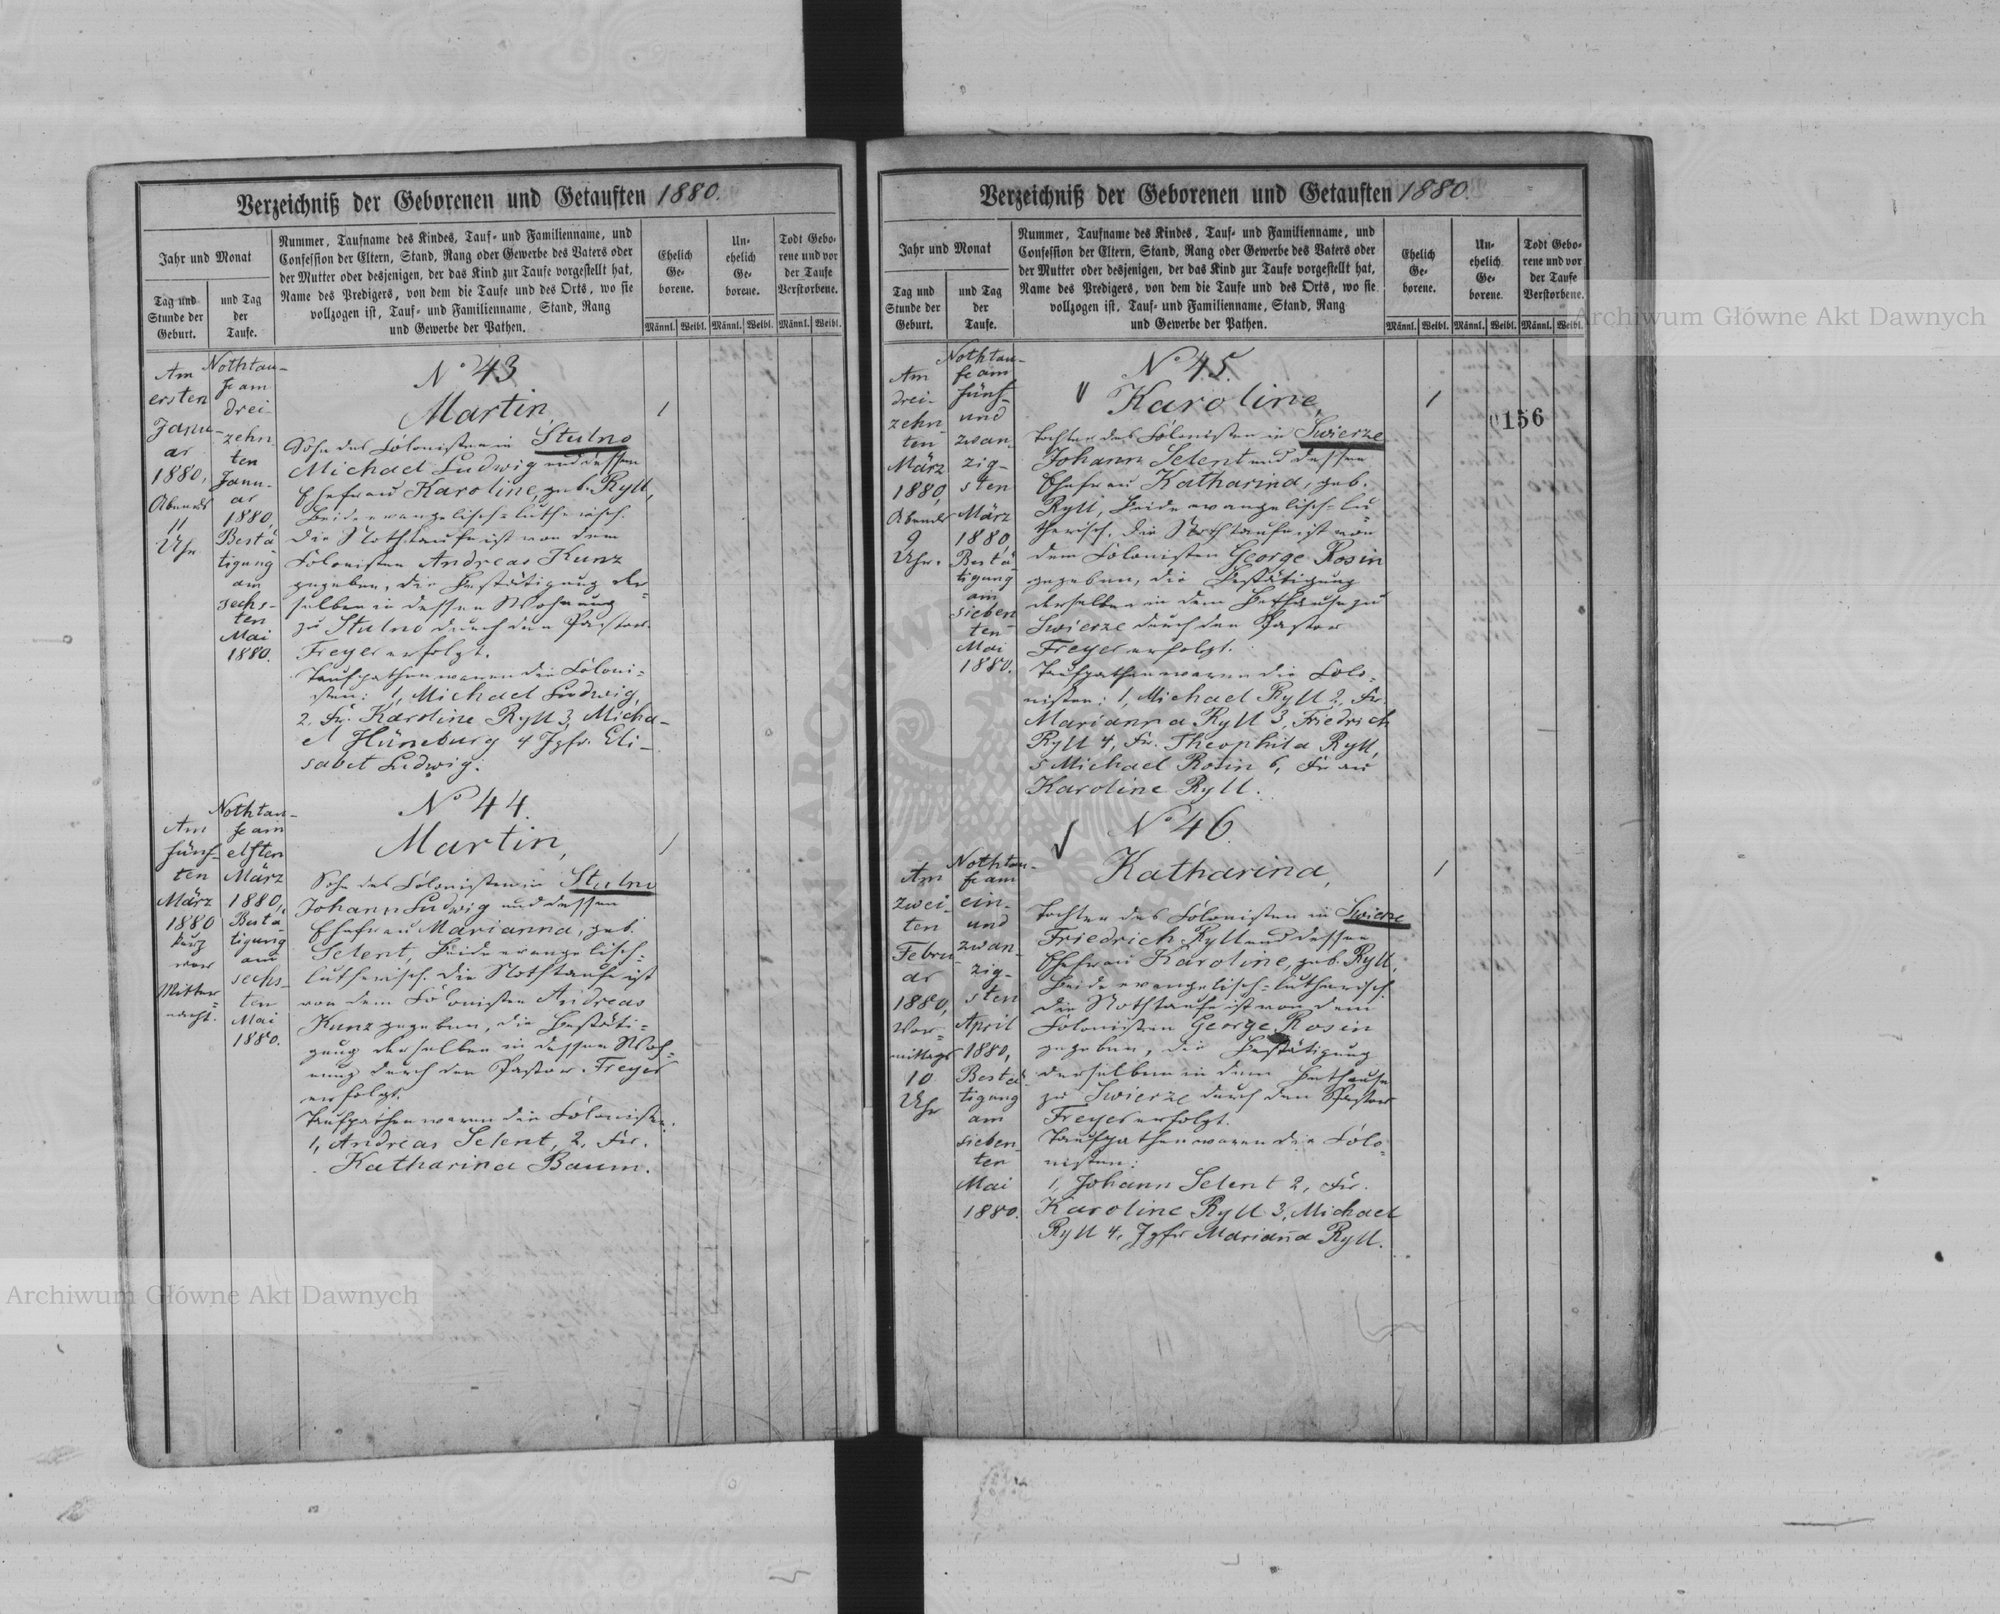 Verzeichniß der Geborenen und Getauften 1880.
Jahr und Monat
Tag und
Stunde der
Geburt.
und Tag
der
Taufe.
Nummer, Taufname des Kindes, Tauf- und Familienname, und
Confession der Eltern, Stand, Rang oder Gewerbe des Vaters oder
der Mutter oder desjenigen, der das Kind zur Taufe vorgestellt hat,
Name des Predigers, von dem die Taufe und des Orts, wo sie
vollzogen ist, Tauf- und Familienname, Stand, Rang
und Gewerbe der Pathen.
Ehelich
Ge-
borene.
Un-
ehelich
Ge-
borene.
Todt Gebo-
rene und vor
der Taufe
Verstorbene.
Männl. Weibl. Männl. Weibl. Männl. Weibl.
Am
ersten
Janu-
ar
1880,
Abends
11
Uhr
Nothtau-
fe am
drei-
zehn
ten
Janu-
ar
1880,
Bestä-
tigung
am
sechs-
ten
Mai
1880.
No 43
Martin,
Sohn des Colonisten in Stulno
Michael Ludwig und dessen
Ehefrau Karoline, geb. Ryll,
Beide evangelisch-lutherisch.
Die Nothtaufe ist von dem
Colonisten Andreas Kunz
gegeben, die Bestätigung der-
selben in dessen Wohnung
zu Stulno durch den Pastor
Freyer erfolgt.
Taufpathen waren die Coloni-
sten: 1, Michael Ludwig,
2, Fr. Karoline Ryll 3, Micha-
el Hüneburg 4 Jgfr. Eli-
sabet Ludwig.
1
Am
fünf-
ten
März
1880
kurz
vor
Mitter-
nacht.
Nothtau-
fe am
elften
März
1880,
Bestä-
tigung
am
sechs-
ten
Mai
1880.
No 44.
Martin,
Sohn des Colonisten in Stulno
Johann Ludwig und dessen
Ehefrau Marianna, geb.
Selent, Beide evangelisch-
lutherisch. Die Nothtaufe ist
von dem Colonisten Andreas
Kunz gegeben, die Bestäti-
gung derselben in dessen Woh-
nung durch den Pastor Freyer
erfolgt.
Taufpathen waren die Colonisten:
1, Andreas Selent, 2, Fr.
Katharina Baum.
1
Verzeichniß der Geborenen und Getauften 1880.
Jahr und Monat
Tag und
Stunde der
Geburt.
und Tag
der
Taufe.
Nummer, Taufname des Kindes, Tauf- und Familienname, und
Confession der Eltern, Stand, Rang oder Gewerbe des Vaters oder
der Mutter oder desjenigen, der das Kind zur Taufe vorgestellt hat,
Name des Predigers, von dem die Taufe und des Orts, wo sie
vollzogen ist, Tauf- und Familienname, Stand, Rang
und Gewerbe der Pathen.
Ehelich
Ge-
borene.
Un-
ehelich
Ge-
borene.
Todt Gebo-
rene und vor
der Taufe
Verstorbene.
Männl. Weibl. Männl. Weibl. Männl. Weibl.
Am
drei-
zehn
ten
März
1880,
Abends
9
Uhr.
Nothtau-
fe am
fünf-
und
zwan-
zig-
sten
März
1880,
Bestä-
tigung
am
sieben
ten
Mai
1880.
No 45.
Karoline,
Tochter des Colonisten in Swierze
Johann Selent und dessen
Ehefrau Katharina, geb.
Ryll, Beide evangelisch-lu-
therisch. Die Nothtaufe ist von
dem Colonisten George Rosin
gegeben, die Bestätigung
derselben in dem Bethause zu
Swierze durch den Pastor
Freyer erfolgt.
Taufpathen waren die Colo-
nisten: 1, Michael Ryll 2, Fr.
Marianna Ryll 3, Friedrich
Ryll 4, Fr. Theophila Ryll,
5 Michael Rosin 6, Frau
Karoline Ryll.
1
156
Am
zwei-
ten
Febru-
ar
1880,
Vor-
mittags
10
Uhr
Nothtau-
fe am
ein-
und
zwan-
zig-
sten
April
1880,
Bestä-
tigung
am
sieben-
ten
Mai
1880.
No 46.
Katharina,
Tochter des Colonisten in Swierze
Friedrich Ryll und dessen
Ehefrau Karoline, geb. Ryll,
Beide evangelisch-lutherisch.
Die Nothtaufe ist von dem
Colonisten George Rosin
gegeben, die Bestätigung
derselben in dem Bethause
zu Swierze durch den Pastor
Freyer erfolgt.
Taufpathen waren die Colo-
nisten:
1, Johann Selent 2, Fr.
Karoline Ryll 3, Michael
Ryll 4, Jgfr Marianna Ryll.
1
Archiwum Główne Akt Dawnych
Archiwum Główne Akt Dawnych